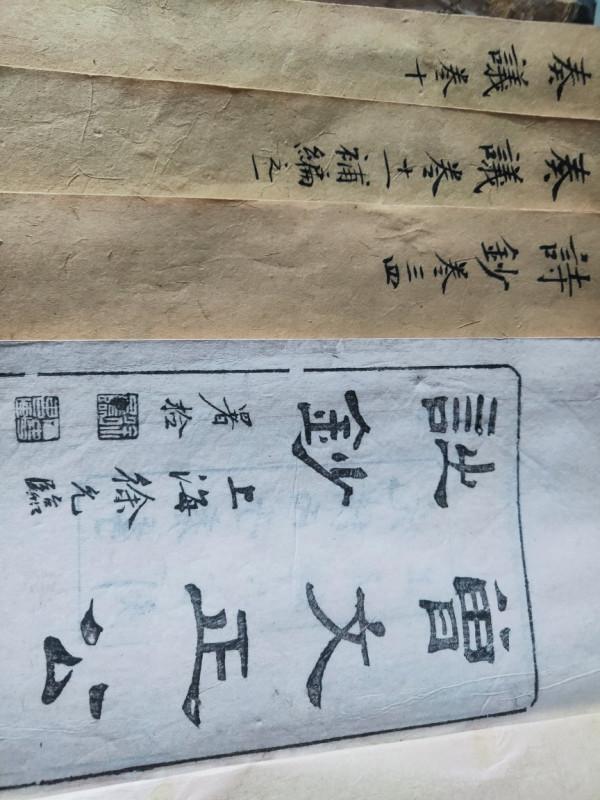 曾文正公
詩鈔
上海徐允臨
署
詩鈔卷三四
奏議卷十一補編之一
奏議卷十